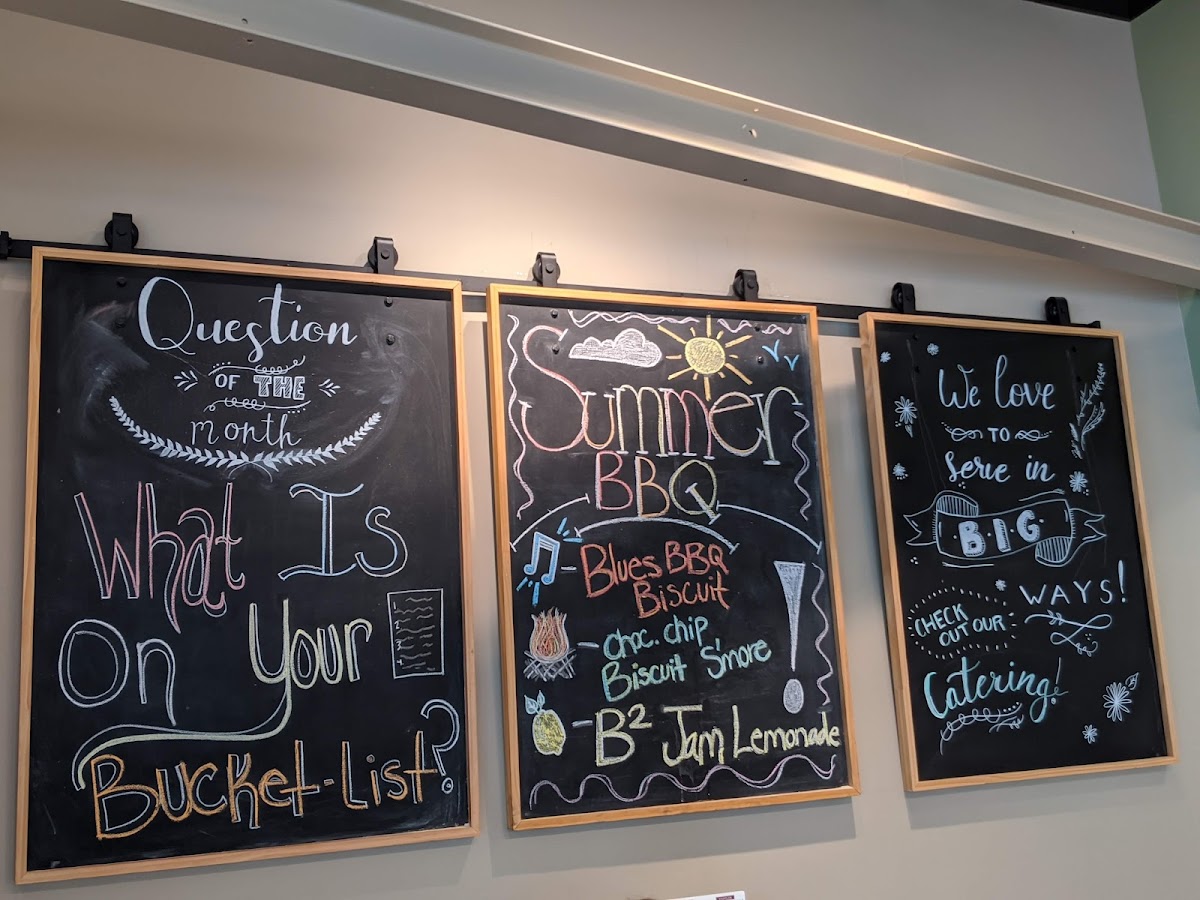 Question
OF THE
month
What Is
On Your
Bucket-List?
Summer
BBQ
Blues BBQ
Biscuit
- choc. chip
Biscuit S'more
- B² Jam Lemonade
We love
TO
serve in
B·I·G
WAYS!
CHECK
OUT OUR
Catering!